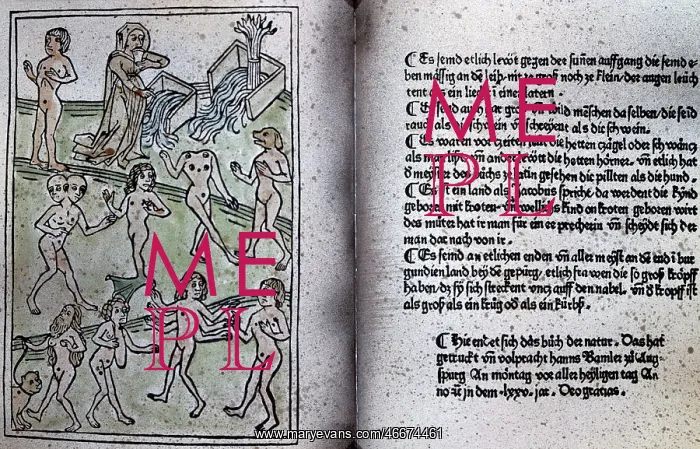 Es seind etlich leüt gegen der suñen auffgang die seind e-
ben mässig an dē leib nit ze groß noch ze klein der augen leüch
tent als ein liecht in einer latern.
Es seind auch gar groß vñ wild mēschen da selben die seid
rauch als die schwein vñ schreyent als die schwein.
Es waren vor zeiten leüt die hetten zägel oder schwäncz
als die vñ ander leüte die hetten hörner. vñ etlich hat
d meyster des bůchs ze latin gesehen die pillten als die hund.
Es ist ein land als Jacobus spricht da werdent die kind
geboren mit kroten vñ welliches kind on kroten geboren wirt
des můter hat ir man für ein ee precherin vñ scheyde sich der
man dar nach von ir.
Es seind an etlichen enden vñ aller meyst an dē end i bur
gundien land bey dē gepürg, etlich frawen die so groß kröpff
haben dz sy sich streckent vncz auff den nabel. vñ d kropff ist
als groß als ein krůg od als ein kürbß.
Hie endet sich das bůch der natur. Das hat
getruckt vñ volpracht hanns Bämler zů Aug-
spurg An montag vor aller heyligen tag An
no zc̄ in dem .lxxv. jar. Deo gratias.
ME
PL
ME
PL
www.maryevans.com/46674461